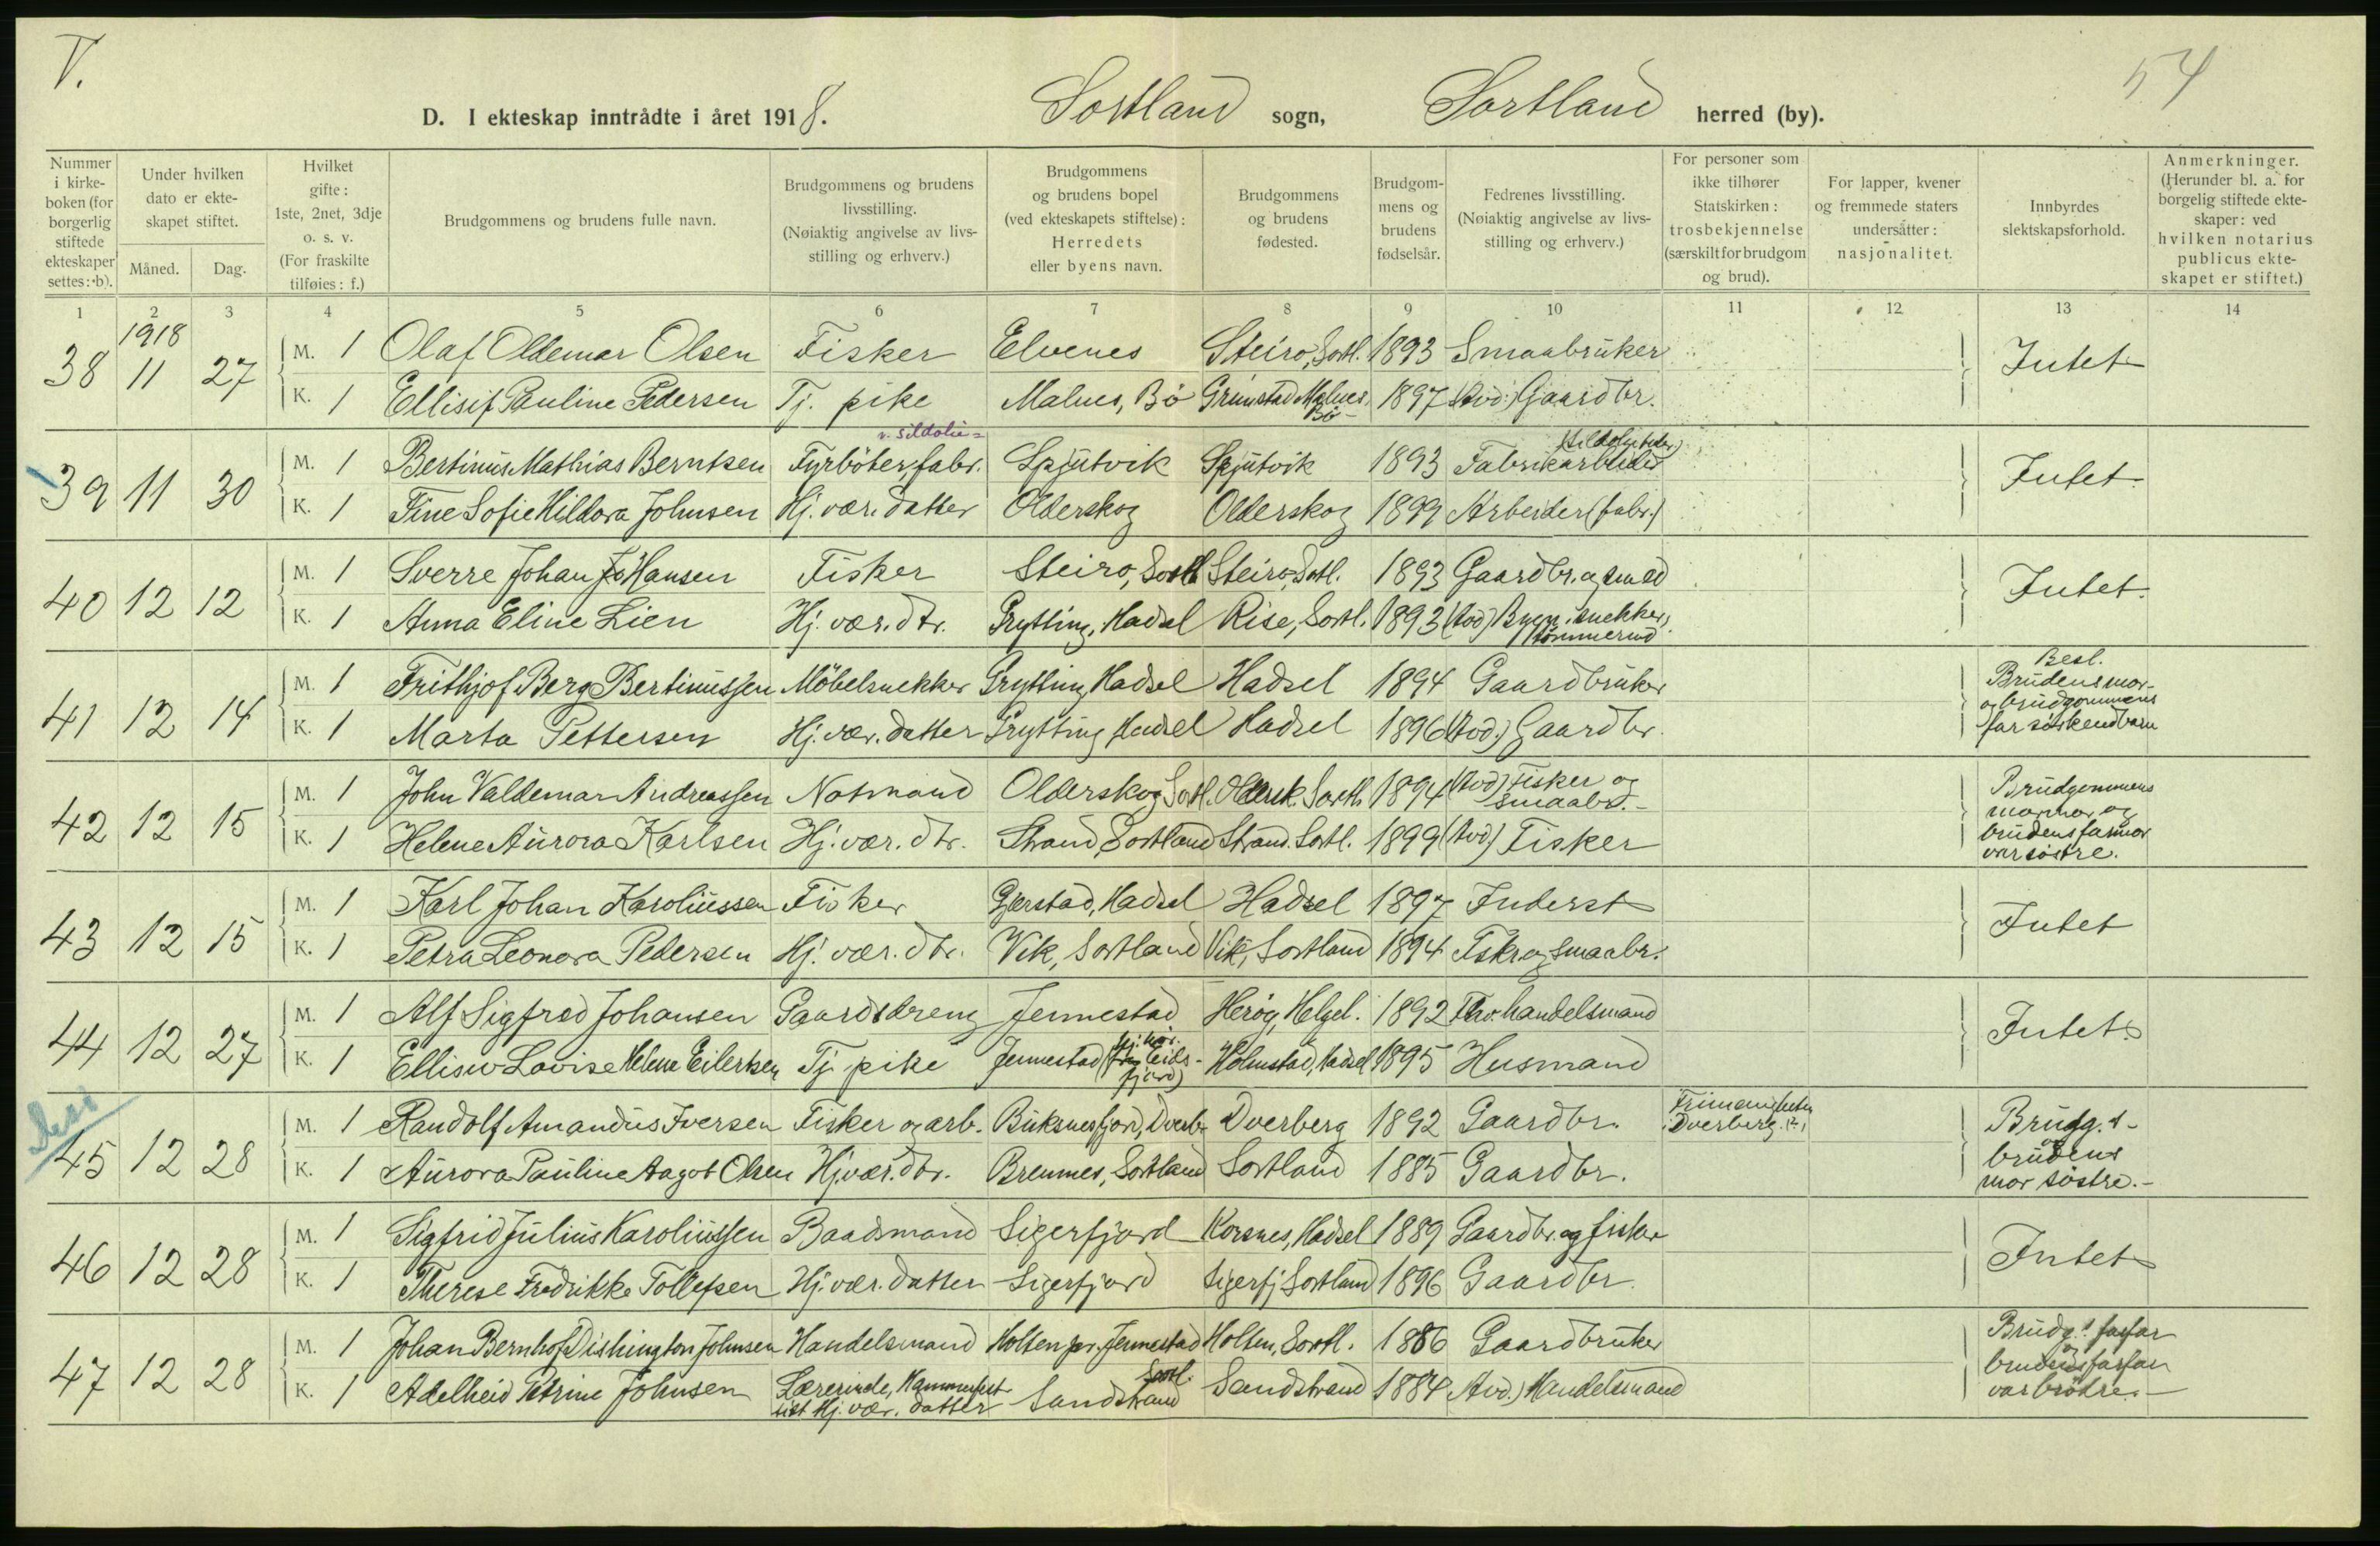 V.
54
D. I ekteskap inntrådte i året 1918. Sortland sogn, Sortland herred (by).
Nummer i kirke-boken (for borgerlig stiftede ekteskaper settes: b). Under hvilken dato er ekte-skapet stiftet. Måned. Dag. Hvilket gifte: 1ste, 2net, 3dje o. s. v. (For fraskilte tilføies: f.) Brudgommens og brudens fulle navn. Brudgommens og brudens livsstilling. (Nøiaktig angivelse av livs-stilling og erhverv.) Brudgommens og brudens bopel (ved ekteskapets stiftelse): Herredets eller byens navn. Brudgommens og brudens fødested. Brudgom-mens og brudens fødselsår. Fedrenes livsstilling. (Nøiaktig angivelse av livs-stilling og erhverv.) For personer som ikke tilhører Statskirken: trosbekjennelse (særskilt for brudgom og brud). For lapper, kvener og fremmede staters undersåtter: nasjonalitet. Innbyrdes slektskapsforhold. Anmerkninger. (Herunder bl. a. for borgelig stiftede ekte-skaper: ved hvilken notarius publicus ekte-skapet er stiftet.)
1 2 3 4 5 6 7 8 9 10 11 12 13 14
1918
38 11 27 M. 1 Olaf Oldemar Olsen Fisker Elvenes Steiro, Sortl. 1893 Smaabruker Intet
K. 1 Ellisif Pauline Pedersen Tj. pike Malnes, Bö Grimstad Malnes Bö 1897 (Avd:) Gaardbr.
39 11 30 M. 1 Bertinus Mathias Berntsen Fyrböter, fabr. v. sildolie= Spjutvik Spjutvik 1893 Fabrikarbeider Intet
K. 1 Tine Sofie Hildora Johnsen Hj. vær. datter Olderskog Olderskog 1899 Arbeider (fabr.)
40 12 12 M. 1 Sverre Johan Hansen Fisker Steiro, Sortl. Steiro, Sortl. 1893 Gaardbr. og smed Intet.
K. 1 Anna Eline Lien Hj. vær. dtr. Grytting, Hadsel Rise, Sortl. 1893 (Avd) Bygn. snekker,
41 12 14 M. 1 Frithjof Berg Bertinussen Möbelsnekker Grytting Hadsel Hadsel 1894 Gaardbruker Besl. Brudens mor- og brudgommens far söskendbarn
K. 1 Marta Pettersen Hj. vær. datter Grytting Hadsel Hadsel 1896 (Avd.) Gaardbr.
42 12 15 M. 1 John Valdemar Andreassen Notmand Olderskog Sortl. Oldersk. Sortl. 1894 (Avd) Fisker og smaabr.- Brudgommens mormor og brudens farmor var söstre.
K. 1 Helene Aurora Karlsen Hj. vær. dtr. Strand, Sortland Strand. Sortl. 1899 (Avd.) Fisker
43 12 15 M. 1 Karl Johan Karoliussen Fisker Gjerstad, Hadsel Hadsel 1897 Inderst Intet
K. 1 Petra Leonora Pedersen Hj. vær. dtr. Vik, Sortland Vik, Sortland 1894 Fskr. og smaabr.
44 12 27 M. 1 Alf Sigfred Johansen Gaardsdreng Jennestad Heröy, Helgel. 1892 Fhv. handelsmand Intet
K. 1 Ellisiv Lovise Helene Eilertsen Tj. pike Jennestad Holmstad, Hadsel 1895 Husmand
45 12 28 M. 1 Randolf Amandus Iversen Fisker og arb. Buksnesfjord, Dverb. Dverberg 1892 Gaardbr. Frimenigheten Dverberg. Brudg.s- og brudens mor söstre.-
K. 1 Aurora Pauline Aagot Olsen Hj. vær. dtr. Brennes, Sortland Sortland 1885 Gaardbr.
46 12 28 M. 1 Sigfrid Julius Karoliussen Baadsmand Sigerfjord Korsnes, Hadsel 1889 Gaardbr. og fisker Intet
K. 1 Therese Fredrikke Tollefsen Hj. vær. datter Sigerfjord Sigerfj Sortland 1896 Gaardbr.
47 12 28 M. 1 Johan Bernhof Dishington Johnsen Handelsmand Holten pr. Jennestad Holten, Sortl. 1886 Gaardbruker Brudg.s farfar og brudens farfar var brödre.-
K. 1 Adelheid Petrine Johnsen Lærerinde, Hammerfest sist Hj. vær. datter Sandstrand Sortl. Sandstrand 1884 Avd.) Handelsmand